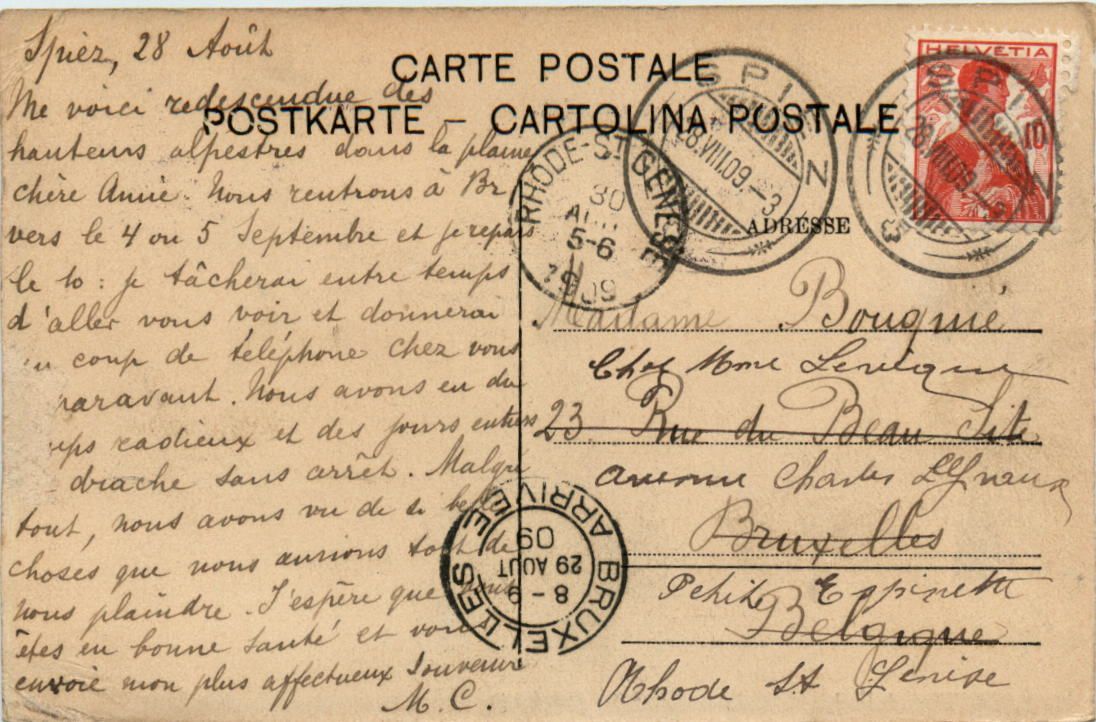 Spiez, 28 Août
Me voici redescendue des
hauteurs alpestres dans la plaine
chère Annie. Nous rentrons à Br.
vers le 4 ou 5 Septembre et je repars
le 10 : je tâcherai entre temps
d'aller vous voir et donnerai
un coup de téléphone chez vous
paravant. Nous avons eu du
mps radieux et des jours entiers
drache sans arrêt. Malgré
tout, nous avons vu de si belles
choses que nous aurions tort de
nous plaindre. J'espère que vous
êtes en bonne santé et vous
envoie mon plus affectueux souvenir
M. C.
CARTE POSTALE
POSTKARTE – CARTOLINA POSTALE
ADRESSE
HELVETIA
10
SPIEZ
28.VIII.09.–3
SPIEZ
28.VIII.09.–3
RHODE-ST-GENESE
30
AOUT
5-6
1909
Madame Bouqnie
Chez Mme
23 Rue du Beau Site
avenue Charles
Bruxelles
Petite Espinette
Belgique
Rhode St Genèse
BRUXELLES ARRIVÉE
8-9
29 AOUT
09